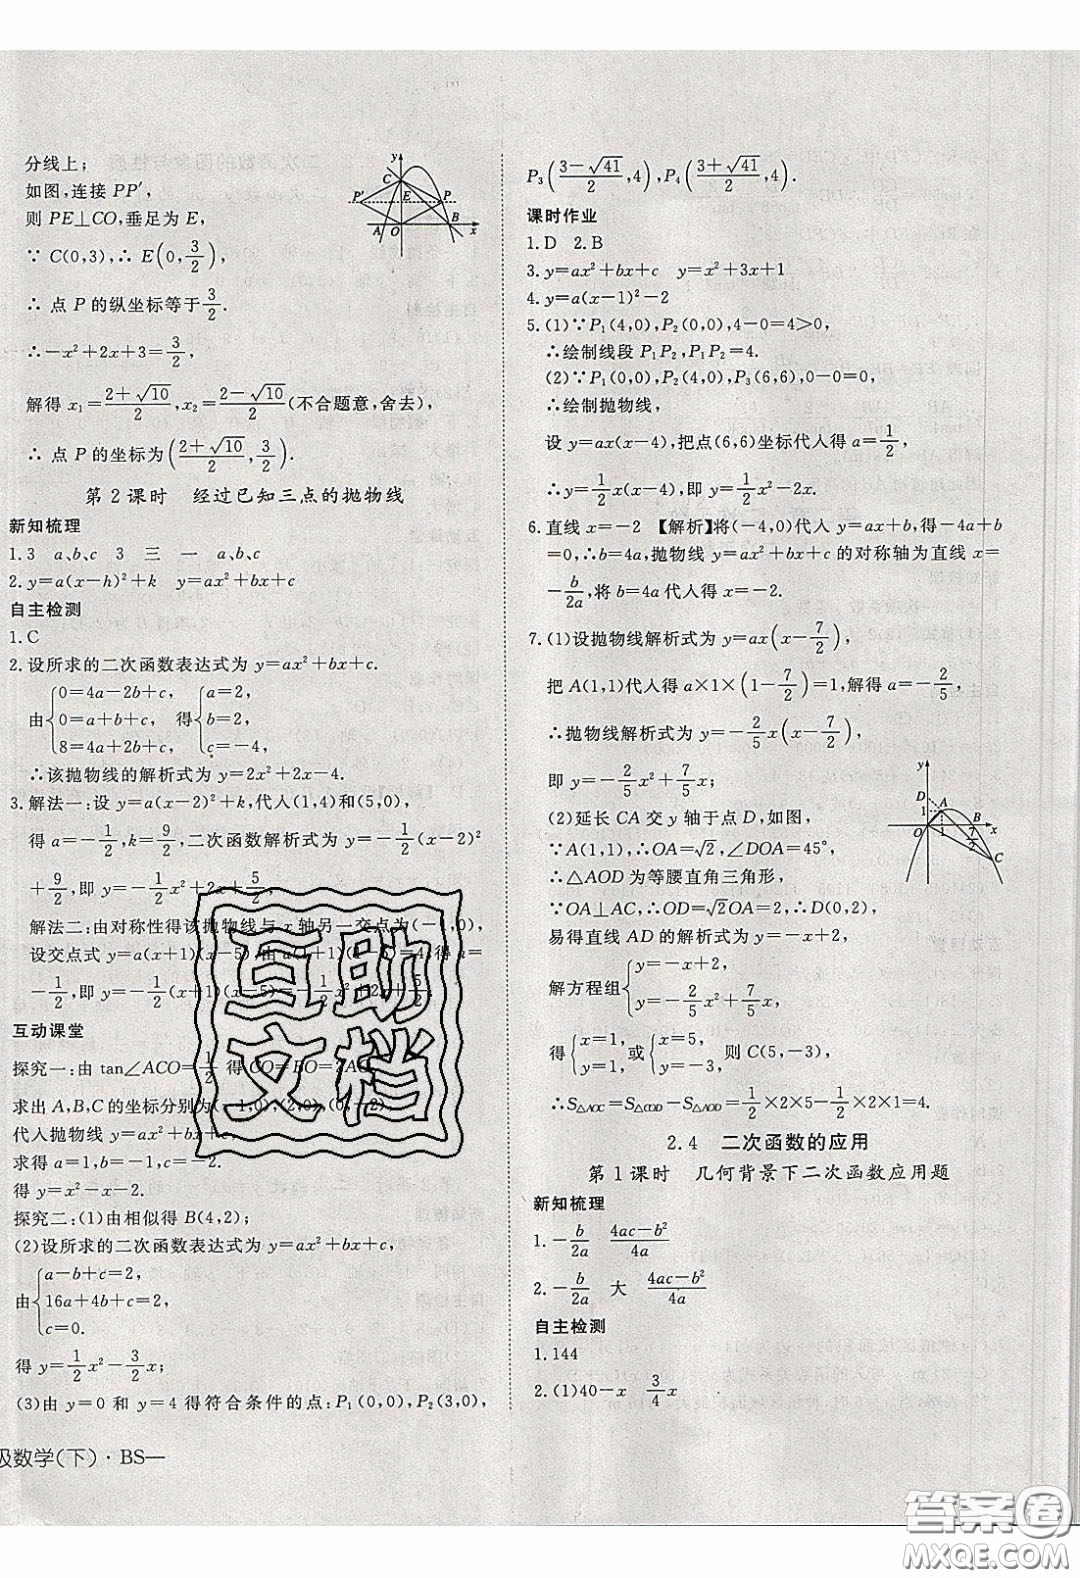 分线上；
如图，连接 PP′，
则 PE⊥CO，垂足为 E，
∵ C(0,3)，∴ E(0, 3/2)，
∴ 点 P 的纵坐标等于 3/2.
∴ −x²+2x+3=3/2，
解得 x₁=(2+√10)/2, x₂=(2−√10)/2(不合题意，舍去)，
∴ 点 P 的坐标为((2+√10)/2, 3/2).
y
C
P′
E
P
A
O
B
x
第 2 课时 经过已知三点的抛物线
新知梳理
1.3 a、b、c 3 三 一 a、b、c
2. y=a(x−h)²+k y=ax²+bx+c
自主检测
1.C
2.设所求的二次函数表达式为 y=ax²+bx+c.
由{0=4a−2b+c, 0=a+b+c, 8=4a+2b+c, 得{a=2, b=2, c=−4,
∴该抛物线的解析式为 y=2x²+2x−4.
3.解法一：设 y=a(x−2)²+k，代人(1,4)和(5,0)，
得 a=−1/2, k=9/2，二次函数解析式为 y=−1/2(x−2)²
+9/2，即 y=−1/2x²+2x+5/2.
解法二：由对称性得该抛物线与 x 轴另一交点为(−1,0)，
设交点式 y=a(x+1)(x−5)，由 a(x+1)(x−5)=4，得 a=
−1/2，即 y=−1/2(x+1)(x−5)=−1/2x²+2x+5/2.
互动课堂
探究一：由 tan∠ACO=1/2 得 CO=BO=2AO
求出 A,B,C 的坐标分别为(−1,0),(2,0),(0,−2)
代人抛物线 y=ax²+bx+c，
求得 a=1,b=−1,c=−2.
得 y=x²−x−2.
探究二：(1)由相似得 B(4,2)；
(2)设所求的二次函数表达式为 y=ax²+bx+c，
由{a−b+c=2, 16a+4b+c=2, c=0.
得 y=1/2x²−3/2x；
(3)由 y=0 和 y=4 得符合条件的点：P₁(0,0), P₂(3,0)，
级数学(下)·BS—
P₃((3−√41)/2, 4), P₄((3+√41)/2, 4).
课时作业
1.D 2.B
3. y=ax²+bx+c y=x²+3x+1
4. y=a(x−1)²−2
5.(1)∵P₁(4,0),P₂(0,0),4−0=4>0，
∴绘制线段 P₁P₂，P₁P₂=4.
(2)∵P₁(0,0),P₂(4,0),P₃(6,6),0−0=0，
∴绘制抛物线，
设 y=ax(x−4)，把点(6,6)坐标代人得 a=1/2，
∴y=1/2x(x−4)，即 y=1/2x²−2x.
6.直线 x=−2 【解析】将(−4,0)代人 y=ax+b，得−4a+b
=0，∴b=4a，抛物线 y=ax²+bx+c 的对称轴为直线 x=
−b/2a，将 b=4a 代人得 x=−2.
7.(1)设抛物线解析式为 y=ax(x−7/2)，
把 A(1,1)代人得 a×1×(1−7/2)=1，解得 a=−2/5，
∴抛物线解析式为 y=−2/5x(x−7/2)，
即 y=−2/5x²+7/5x；
(2)延长 CA 交 y 轴于点 D，如图，
∵A(1,1)，∴OA=√2，∠DOA=45°，
∴△AOD 为等腰直角三角形，
∵OA⊥AC，∴OD=√2OA=2，∴D(0,2)，
易得直线 AD 的解析式为 y=−x+2，
解方程组{y=−x+2, y=−2/5x²+7/5x,
得{x=1, y=1,或{x=5, y=−3, 则 C(5,−3)，
∴S△AOC=S△COD−S△AOD=1/2×2×5−1/2×2×1=4.
y
D
A
1
B
O
1
7/2
x
C
2.4 二次函数的应用
第 1 课时 几何背景下二次函数应用题
新知梳理
1.−b/2a (4ac−b²)/4a
2.−b/2a 大 (4ac−b²)/4a
自主检测
1.144
2.(1)40−x 3/4x
互助
文档
答案卷
MXQE.COM